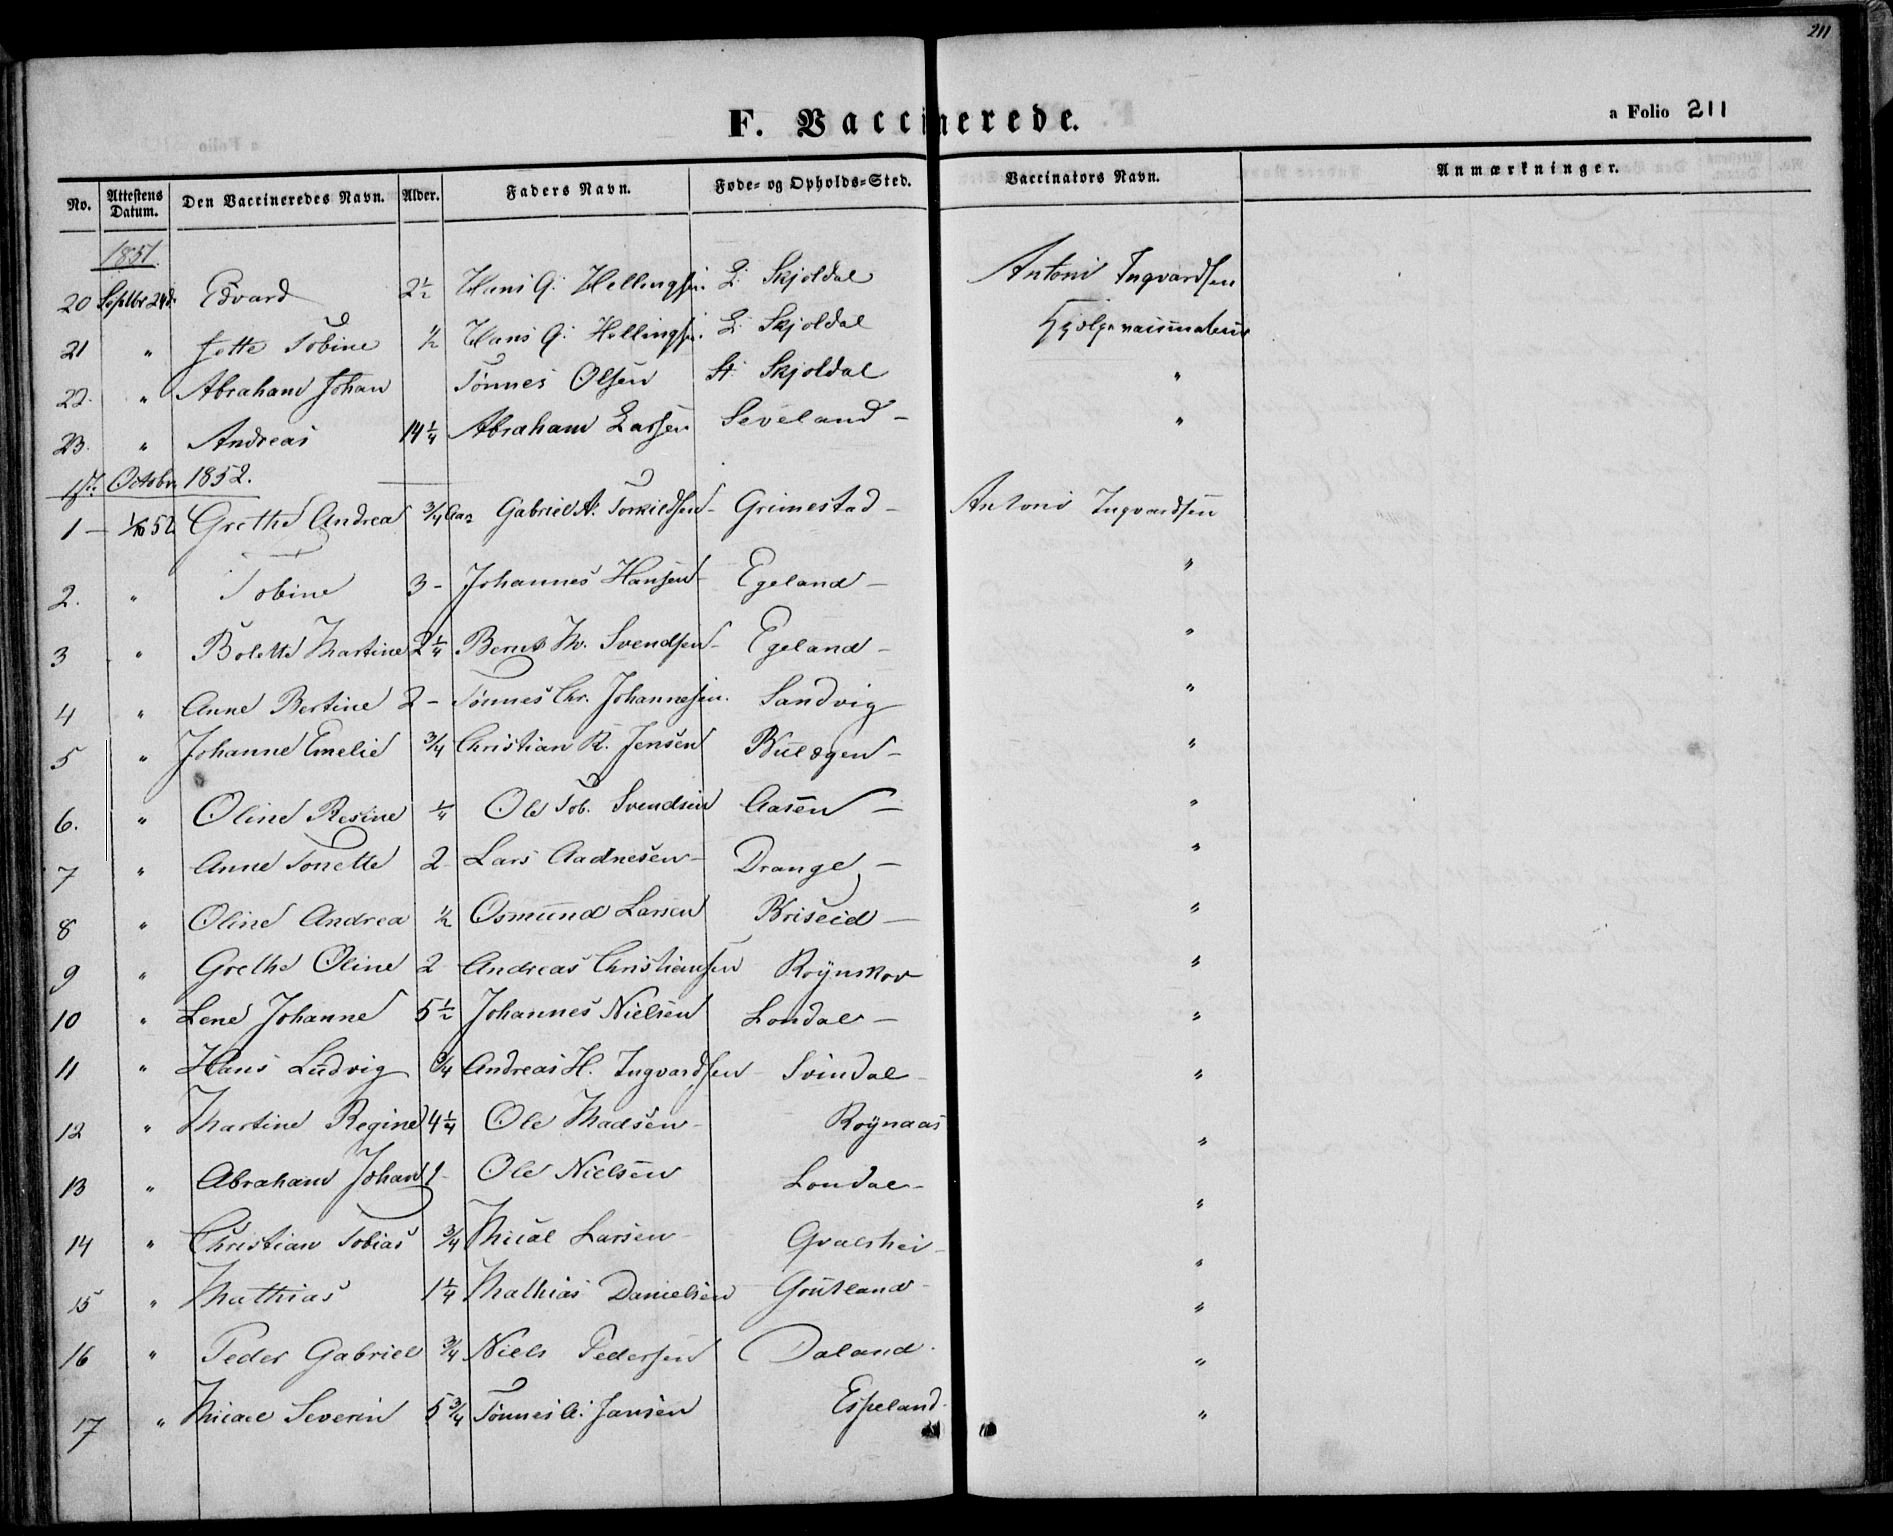 211
F. Vaccinerede.
a Folio 211
No. Attestens Datum. Den Vaccineredes Navn. Alder. Faders Navn. Føde- og Opholds-Sted. Vaccinators Navn. Anmærkninger.
1851.
20 Septbr 24d. Edvard 2½ Hans G. Hellingsen. L: Skjoldal Antoni Ingvardsen
21 " Jette Tobine ½ Hans G. Hellingsen. L: Skjoldal
22. " Abraham Johan Tønnes Olsen St: Skjoldal "
23. " Andreas 14¼ Abraham Larsen Seveland – "
1ste Octobr. 1852.
1 – 1/10 52 Grethe Andrea ¾ Aar Gabriel A. Torkildsen – Grimestad – Antoni Ingvardsen
2. " Tobine 3 – Johannes Hansen – Egeland – "
3 " Bolette Martine 2¼ Bernt M. Svendsen – Egeland – "
4 " Anne Bertine 2 – Tønnes Chr. Johannesen. Sandvig "
5 " Johanne Emelie ¾ Christian R. Jensen – "
6. " Oline Resine ¼ Ole Tob. Svendsen Aasen – "
7 " Anne Tonette 2 Lars Aadnesen – Drange – "
8 " Oline Andrea ½ Osmund Larsen Briseid – "
9 " Grethe Oline 2 Andreas Christiansen Røynskor "
10 " Lene Johanne 5½ Johannes Nielsen Londal – "
11 " Hans Ludvig ¾ Andreas H. Ingvardsen Svindal – "
12 " Martine Regine 4¼ Ole Madsen – Røynaas "
13 " Abraham Johan 1 – Ole Nielsen Londal – "
14 " Christian Tobias ¾ Mical Larsen – Gvalshei – "
15 " Mathias 1¼ Mathias Danielsen Goutland – "
16 " Peder Gabriel ¾ Niels Pedersen Daland. "
17 " Micael Severin 5¾ Tønnes A. Jansen Espeland. "